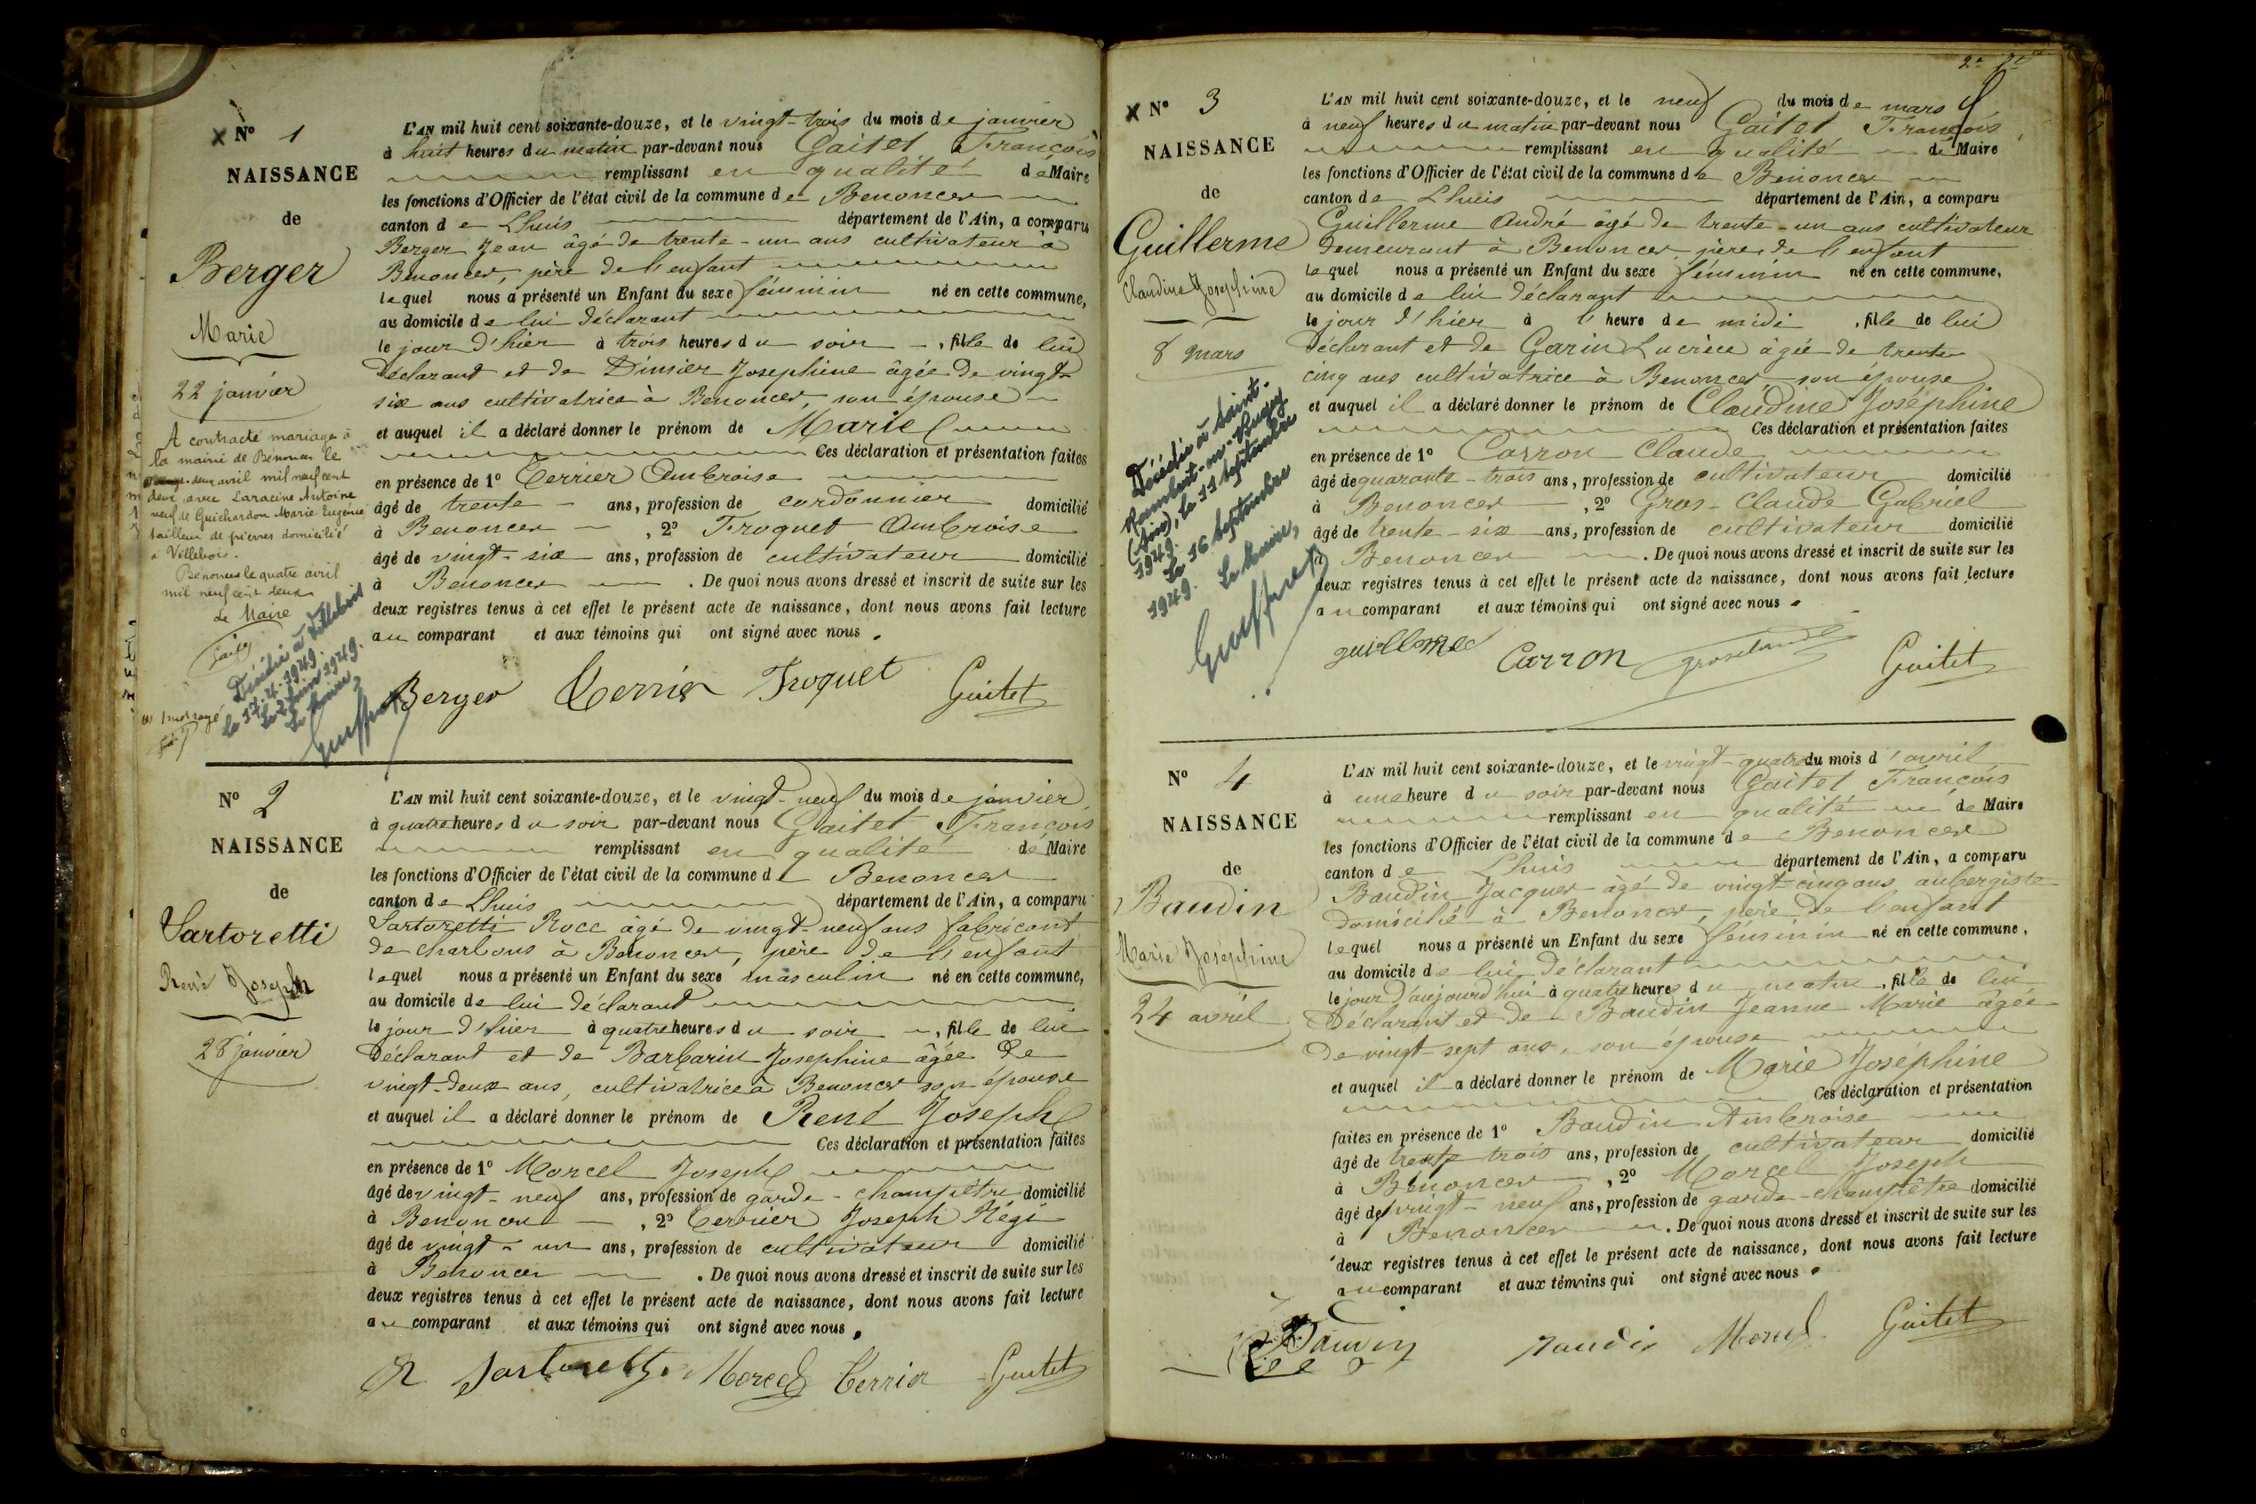 N° 1
NAISSANCE
de
Berger
Marie
22 janvier
A contracté mariage à
la mairie de Benonces le
deux avril mil neuf cent
deux avec Laracine Antoine
veuf de Guichardon Marie Eugénie
tailleur de pierres domicilié
à Villebois.
Benonces le quatre avril
mil neuf cent deux
Le Maire
Décédée à Villebois
le 17.4.1949.
Le 2 juin 1949.
Le Maire,
L'AN mil huit cent soixante-douze, et le vingt-trois du mois de janvier
à huit heures du matin par-devant nous Gaitet François
remplissant en qualité de Maire
les fonctions d'Officier de l'état civil de la commune de Benonces
canton de Lhuis département de l'Ain, a comparu
Berger Jean âgé de trente-un ans cultivateur à
Benonces, père de l'enfant
lequel nous a présenté un Enfant du sexe féminin né en cette commune,
au domicile de lui déclarant
le jour d'hier à trois heures du soir, fille de lui
déclarant et de Dinsier Josephine âgée de vingt-
six ans cultivatrice à Benonces, son épouse
et auquel il a déclaré donner le prénom de Marie
Ces déclaration et présentation faites
en présence de 1° Terrier Ambroise
âgé de trente ans, profession de cordonnier domicilié
à Benonces, 2° Froquet Ambroise
âgé de vingt-six ans, profession de cultivateur domicilié
à Benonces. De quoi nous avons dressé et inscrit de suite sur les
deux registres tenus à cet effet le présent acte de naissance, dont nous avons fait lecture
au comparant et aux témoins qui ont signé avec nous.
Berger Terrier Froquet Gaitet
N° 2
NAISSANCE
de
Sartoretti
René Joseph
28 janvier
L'AN mil huit cent soixante-douze, et le vingt-neuf du mois de janvier
à quatre heures du soir par-devant nous Gaitet François
remplissant en qualité de Maire
les fonctions d'Officier de l'état civil de la commune de Benonces
canton de Lhuis département de l'Ain, a comparu
Sartoretti Rocc âgé de vingt-neuf ans fabricant
de charbons à Benonces, père de l'enfant
lequel nous a présenté un Enfant du sexe masculin né en cette commune,
au domicile de lui déclarant
le jour d'hier à quatre heures du soir, fils de lui
déclarant et de Barbarin Josephine âgée de
vingt-deux ans, cultivatrice à Benonces son épouse
et auquel il a déclaré donner le prénom de René Joseph
Ces déclaration et présentation faites
en présence de 1° Morcel Joseph
âgé de vingt-neuf ans, profession de garde-champêtre domicilié
à Benonces, 2° Terrier Joseph Régi
âgé de vingt-un ans, profession de cultivateur domicilié
à Benonces. De quoi nous avons dressé et inscrit de suite sur les
deux registres tenus à cet effet le présent acte de naissance, dont nous avons fait lecture
au comparant et aux témoins qui ont signé avec nous.
R Sartoretti Morcel Terrier Gaitet
N° 3
NAISSANCE
de
Guillerme
Claudine Joséphine
8 mars
Décédée à Saint-
Rambert-en-Bugey
(Ain), le 11 septembre
1949.
Le 16 septembre
1949. Le Maire,
L'AN mil huit cent soixante-douze, et le neuf du mois de mars
à neuf heures du matin par-devant nous Gaitet François
remplissant en qualité de Maire
les fonctions d'Officier de l'état civil de la commune de Benonces
canton de Lhuis département de l'Ain, a comparu
Guillerme André âgé de trente-un ans cultivateur
demeurant à Benonces, père de l'enfant
lequel nous a présenté un Enfant du sexe féminin né en cette commune,
au domicile de lui déclarant
le jour d'hier à l'heure de midi, fille de lui
déclarant et de Garin Lucrèce âgée de trente
cinq ans cultivatrice à Benonces son épouse
et auquel il a déclaré donner le prénom de Claudine Joséphine
Ces déclaration et présentation faites
en présence de 1° Carron Claude
âgé de quarante-trois ans, profession de cultivateur domicilié
à Benonces, 2° Gros-Claude Gabriel
âgé de trente-six ans, profession de cultivateur domicilié
à Benonces. De quoi nous avons dressé et inscrit de suite sur les
deux registres tenus à cet effet le présent acte de naissance, dont nous avons fait lecture
au comparant et aux témoins qui ont signé avec nous.
guillerme Carron grosclaude Gaitet
N° 4
NAISSANCE
de
Baudin
Marie Joséphine
24 avril
L'AN mil huit cent soixante-douze, et le vingt-quatre du mois d'avril
à une heure du soir par-devant nous Gaitet François
remplissant en qualité de Maire
les fonctions d'Officier de l'état civil de la commune de Benonces
canton de Lhuis département de l'Ain, a comparu
Baudin Jacques âgé de vingt-cinq ans aubergiste
domicilié à Benonces, père de l'enfant
lequel nous a présenté un Enfant du sexe féminin né en cette commune,
au domicile de lui déclarant
le jour d'aujourd'hui à quatre heures du matin, fille de lui
déclarant et de Baudin Jeanne Marie âgée
de vingt-sept ans, son épouse
et auquel il a déclaré donner le prénom de Marie Joséphine
Ces déclaration et présentation
faites en présence de 1° Baudin Ambroise
âgé de trente trois ans, profession de cultivateur domicilié
à Benonces, 2° Morcel Joseph
âgé de vingt-neuf ans, profession de garde-champêtre domicilié
à Benonces. De quoi nous avons dressé et inscrit de suite sur les
deux registres tenus à cet effet le présent acte de naissance, dont nous avons fait lecture
au comparant et aux témoins qui ont signé avec nous.
Baudin Baudin Morcel Gaitet